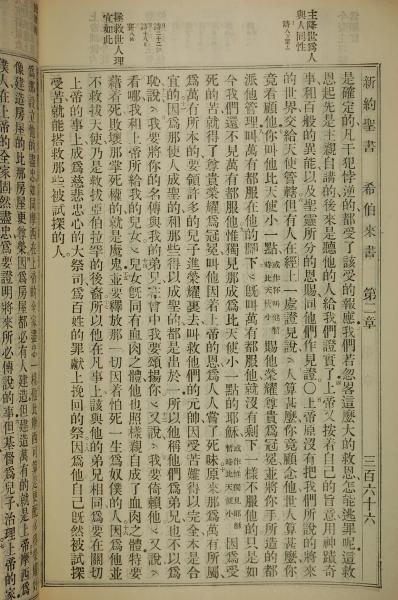 新約聖書 希伯來書 第二章 三百六十六
主降世爲人
與人同性
是確定的凡干犯悖逆的都受了該受的報應我們若忽畧這麼大的救恩怎能逃罪呢這救
恩起先是主親自講的後來是聽他的人給我們證實了上帝又按着自己的旨意用神蹟奇
事和百般的異能以及聖靈所分的恩賜同他們作見證○上帝原沒有把我們所說的將來
的世界交給天使管轄但有人在經上一處證見說人算甚麼你竟顧念他世人算甚麼你
竟眷顧他你叫他比天使小一點賜他榮耀尊貴爲冠冕將你手所造的都
派他管理叫萬有都服在他的脚下旣叫萬有都服他就沒有剩下一樣不服他的只是如
今我們還不見萬有都服他惟獨見那成爲比天使小一點的耶穌因爲受
死的苦就得了尊貴榮耀爲冠冕叫他因着上帝的恩爲人人嘗了死味原來那爲萬有所屬
爲萬有所本的要領許多的兒子進榮耀裏去叫救他們的元帥因受苦難得以完全本是合
拯救世人理
宜如此
宜的因爲那使人成聖的和那些得以成聖的都是出於一所以他稱他們爲弟兄也不以爲
恥說我要將你的名傳與我的弟兄在會中我要頌揚你又說我要倚賴他又說
看哪我和上帝所給我的兒女兒女旣同有血肉之體他也照樣親自成了血肉之體特要
藉着死敗壞那掌死權的就是魔鬼並要釋放那一切因着怕死一生爲奴僕的人因爲他並
不救拔天使乃是救拔亞伯拉罕的後裔所以他在凡事上該與他的弟兄相同爲要在關切
上帝的事上成爲慈悲忠心的大祭司爲百姓的罪獻上挽回的祭因爲他自己旣然被試探
受苦就能搭救那些被試探的人
爲那設立他的盡忠如同摩西在上帝的全家盡忠
像建造房屋的比那房屋更尊榮因爲房屋都必有人建造但建造萬有的就是上帝摩西爲
僕人在上帝的全家固然盡忠爲要證明將來所必傳說的事但基督爲兒子治理上帝的家